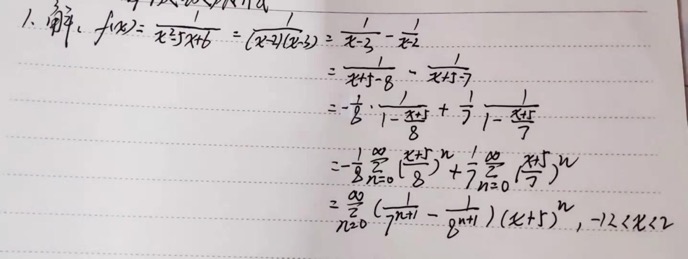 1. 解: f(x) = 1/(x²-5x+6) = 1/((x-2)(x-3)) = 1/(x-3) - 1/(x-2)
= 1/(x+5-8) - 1/(x+5-7)
= -1/8 · 1/(1 - (x+5)/8) + 1/7 1/(1 - (x+5)/7)
= -1/8 ∑_{n=0}^{∞} ((x+5)/8)^n + 1/7 ∑_{n=0}^{∞} ((x+5)/7)^n
= ∑_{n=0}^{∞} (1/7^{n+1} - 1/8^{n+1}) (x+5)^n, -12<x<2